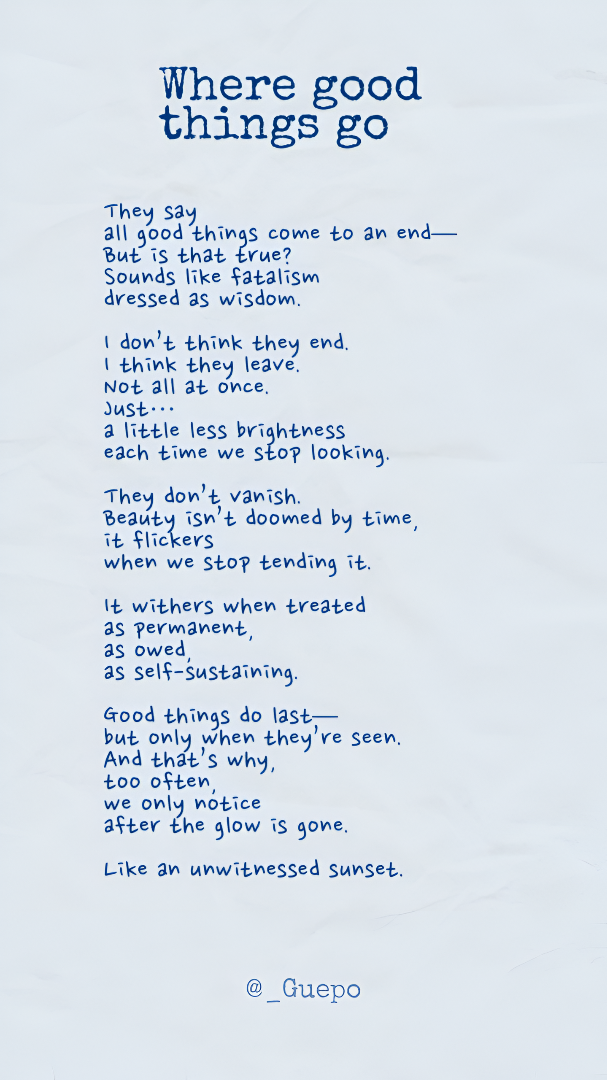 Where good
things go
They say
all good things come to an end—
But is that true?
Sounds like fatalism
dressed as wisdom.
I don't think they end.
I think they leave.
Not all at once.
Just...
a little less brightness
each time we stop looking.
They don't vanish.
Beauty isn't doomed by time,
it flickers
when we stop tending it.
It withers when treated
as permanent,
as owed,
as self-sustaining.
Good things do last—
but only when they're seen.
And that's why,
too often,
we only notice
after the glow is gone.
Like an unwitnessed sunset.
@_Guepo